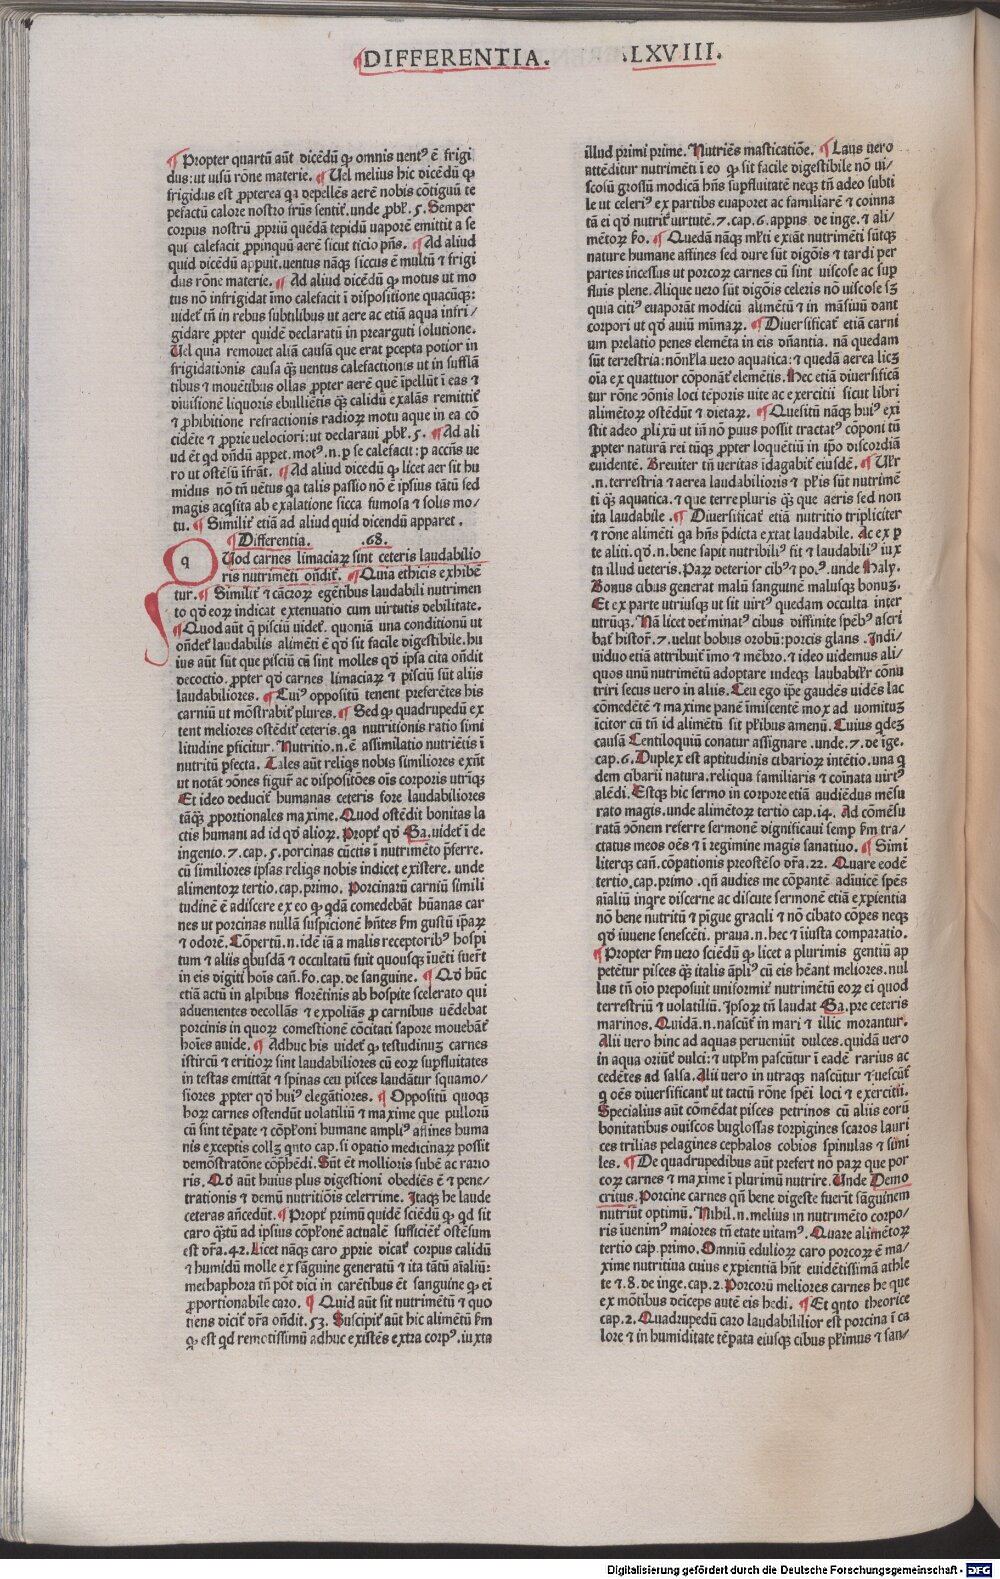 DIFFERENTIA. .LXVIII.
¶ Propter quartū aūt dicēdū ꝙ omnis uentꝰ ē frigi
dus: ut uisū rōne materie. ¶ Uel melius hic dicēdū ꝙ
frigidus est ꝓpterea qa depellēs aerē nobis cōtiguū te
pefactū calore nostro frūs sentit̄. unde ꝓbl̄. 5. Semper
corpus nostrū ꝓpriū quēdā tepidū uaporē emittit a se
qui calefacit ꝓpinquū aerē sicut ticio pn̄s. ¶ Ad aliud
quid dicēdū apparuit. uentus nāqꝫ siccus ē multū ⁊ frigi
dus rōne materie. ¶ Ad aliud dicēdū ꝙ motus ut mo
tus nō infrigidat īmo calefacit ī dispositione quacūqꝫ:
uidet̄ tn̄ in rebus subtilibus ut aere ac etiā aqua infri/
gidare ꝓpter quidē declaratū in prearguti solutione.
Uel quia remouet aliā causā que erat ꝑcepta potior in
frigidationis causa qꝫ uentus calefactionis ut in sufflā
tibus ⁊ mouētibus ollas ꝓpter aerē quē īpellūt ī eas ⁊
diuisionē liquoris ebulliētis qꝫ calidū exalās remittit̄
⁊ ꝓhibitione refractionis radioꝝ motu aque in ea cō
cidēte ⁊ ꝓprie uelociori: ut declaraui ꝓbl̄. 5. ¶ Ad ali
ud ēt qd ōndū appet. motꝰ. n. ꝑ se calefacit: ꝑ accn̄s ue
ro ut ostēsū īfrāt̄. ¶ Ad aliud dicēdū ꝙ licet aer sit hu
midus nō tn̄ uētus qa talis passio nō ē ipsius tātū sed
magis acqsita ab exalatione sicca fumosa ⁊ solis mo/
tu. ¶ Similit̄ etiā ad aliud quid dicendū apparet.
¶ Differentia. .68.
q Uod carnes limaciaꝝ sint ceteris laudabilio
ris nutrimēti ōndit̄. ¶ Quia ethicis exhibē
tur. ¶ Similit̄ ⁊ cācroꝝ egētibus laudabili nutrimen
to qd̄ eoꝝ indicat extenuatio cum uirtutis debilitate.
¶ Quod aūt q pisciū uidet̄. quoniā una conditionū ut
ōndet̄ laudabilis alimēti ē qd̄ sit facile digestibile. hu
ius aūt sūt que pisciū cū sint molles qd̄ ipsa cita ōndit
decoctio. ꝓpter qd̄ carnes limaciaꝝ ⁊ pisciū sūt aliis
laudabiliores. ¶ Cuiꝰ oppositū tenent preferētes his
carniū ut mōstrabit̄ plures. ¶ Sed ꝙ quadrupedū ex
tent meliores ostēdit̄ ceteris. qa nutritionis ratio simi
litudine ꝑficitur. Nutritio. n. ē assimilatio nutriētis ī
nutritū ꝑfecta. Tales aūt reliqs nobis similiores exn̄t
ut notāt ꝯōnes figur̄ ac dispositōes ōis corporis utrīqꝫ
Et ideo deducit̄ humanas ceteris fore laudabiliores
tāqꝫ ꝓportionales maxime. Quod ostēdit bonitas la
ctis humani ad id qd̄ alioꝝ. Propt̄ qd̄ Ga. uidet̄ ī de
ingenio. 7. cap. 5. porcinas cūctis ī nutrimēto p̄ferre.
cū similiores ipsas reliqs nobis indicet existere. unde
alimentoꝝ tertio. cap. primo. Porcinarū carniū simili
tudinē ē adiscere ex eo ꝙ qdā comedebāt hūanas car
nes ut porcinas nullā suspicionē hn̄tes fm gustū ip̄aꝝ
⁊ odorē. Cōpertū. n. idē iā a malis receptoribꝰ hospi
tum ⁊ aliis qbusdā ⁊ occultatū fuit quousqꝫ īuēti fuer̄t
in eis digiti hoīs can̄. ƙo. cap. de sanguine. ¶ Qd̄ hūc
etiā actū in alpibus florētinis ab hospite scelerato qui
aduenientes decollās ⁊ expoliās ꝓ carnibus uēdebat
porcinis in quoꝝ comestionē cōcitati sapore mouebāt̄
hoīes auide. ¶ Adhuc his uidet̄ ꝙ testudinuꝫ carnes
istircū ⁊ eritioꝝ sint laudabiliores cū eoꝝ suꝑfluitates
in testas emittāt ⁊ spinas ceu pisces laudātur squamo/
siores ꝓpter qd̄ huiꝰ elegātiores. ¶ Oppositū quoqꝫ
hoꝝ carnes ostendūt uolatiliū ⁊ maxime que pullorū
cū sint tēpate ⁊ cōplƙoni humane ampliꝰ affines huma
nis exceptis collꝫ qnto cap. si opatio medicinaꝝ possit
demōstratōne cōphēdi. Sūt ēt mollioris subē ac rario
ris. Qd̄ aūt huius plus digestioni obediēs ē ⁊ pene/
trationis ⁊ demū nutritiōis celerrime. Itaqꝫ he laude
ceteras ān̄cedūt. ¶ Propt̄ primū quidē sciēdū ꝙ qd sit
caro qꝫtū ad ipsius cōplƙonē actualē sufficiēt̄ ostēsum
est dr̄a. 42. Licet nāqꝫ caro ꝓprie dicat̄ corpus calidū
⁊ humidū molle ex sāguine generatū ⁊ ita tātū aīaliū:
methaphora tn̄ pōt dici in carētibus ēt sanguine ꝙ ei
ꝓportionabile caro. ¶ Quid aūt sit nutrimētū ⁊ quo
tiens dicit̄ dr̄a ōndit. 53. Suscipit̄ aūt hic alimētū fm
ꝙ est qd remotissimū adhuc existēs extra corpꝰ. iuxta
illud primi prime. Nutriēs masticatiōe. ¶ Laus uero
attēditur nutrimēti ī eo ꝙ sit facile digestibile nō ui/
scosū grossū modicā hn̄s supfluitatē neqꝫ tn̄ adeo subti
le ut celeriꝰ ex partibs euaporet ac familiarē ⁊ coinna
tā ei qd̄ nutrit̄ uirtutē. 7. cap. 6. appn̄s de inge. ⁊ ali/
mētoꝝ ƙo. ¶ Quedā nāqꝫ mƚti exiāt nutrimēti sūtqꝫ
nature humane affines sed dure sūt digōis ⁊ tardi per
partes incessus ut porcoꝝ carnes cū sint uiscose ac sup
fluis plene. Alique uero sūt digōis celeris nō uiscose sꝫ
quia citiꝰ euaporāt modicū alimētū ⁊ in māsiuū dant
corpori ut qd̄ auiū mīmaꝝ. ¶ Diuersificat̄ etiā carni
um prelatio penes elemēta in eis dn̄antia. nā quedam
sūt terrestria: nōnƚla uero aquatica: ⁊ quedā aerea licꝫ
oīa ex quattuor cōponāt̄ elemētis. Hec etiā diuersificā
tur rōne ꝯōnis loci tēporis uite ac exercitii sicut libri
alimētoꝝ ostēdūt ⁊ dietaꝝ. ¶ Quesitū nāqꝫ huiꝰ exi
stit adeo ꝓlixū ut iū nō puus possit tractatꝰ cōponi tū
ꝓpter naturā rei tūqꝫ ꝓpter loquētiū in ip̄o discordiā
euidentē. Breuiter tn̄ ueritas īdagabit̄ eiusdē. ¶ Uƚr
.n. terrestria ⁊ aerea laudabilioris ⁊ pƚris sūt nutrimē
ti qꝫ aquatica. ⁊ que terre pluris qꝫ que aeris sed non
ita laudabile. ¶ Diuersificat̄ etiā nutritio tripliciter
⁊ rōne alimēti qa hn̄s p̄dicta extat laudabile. Ac ex ꝑ
te aliti. qd̄. n. bene sapit nutribiliꝰ fit ⁊ laudabiliꝰ iux
ta illud ueteris. Paꝝ deterior cibꝰ ⁊ poꝰ. unde Haly.
Bonus cibus generat malū sanguinē malusqꝫ bonuꝫ.
Et ex parte utriusqꝫ ut sit uirtꝰ quedam occulta inter
utrūqꝫ. Nā licet det̄minatꝰ cibus diffinite spēbꝰ ascri
bat̄ histoꝝ. 7. uelut bobus orobū: porcis glans. Indi/
uiduo etiā attribuit̄ īmo ⁊ mēbro. ⁊ ideo uidemus ali/
quos unū nutrimētū adoptare indeqꝫ laubabiƚr cōnu
triri secus uero in aliis. Ceu ego ip̄e gaudēs uidēs lac
comedētē ⁊ maxime panē īmiscentē mox ad uomituꝫ
īcitor cū tn̄ id alimētū sit pƚribus amenū. Cuius qdeꝫ
causā Centiloquiū conatur assignare. unde. 7. de ige.
cap. 6. Duplex est aptitudinis cibarioꝝ intētio. una q
dem cibarii natura. reliqua familiaris ⁊ coīnata uirtꝰ
alēdi. Estqꝫ hic sermo in corpore etiā audiēdus mēsu
rato magis. unde alimētoꝝ tertio cap. 14. Ad comēsu
ratā ꝯōnem referre sermonē dignificaui semp fm tra/
ctatus meos oēs ⁊ ī regimine magis sanatiuo. ¶ Simi
literqꝫ can̄. cōpationis preostēso dr̄a. 22. Quare eodē
tertio. cap. primo. qn̄ audies me cōpantē adīuicē spēs
aīaliū inqre discerne ac discute sermonē etiā expientia
nō bene nutritū ⁊ pīgue gracili ⁊ nō cibato cōpes neqꝫ
qd̄ iuuene senescēti. praua. n. hec ⁊ iīusta comparatio.
¶ Propter fm uero sciēdū ꝙ licet a plurimis gentiū ap
petētur pisces qꝫ italis āpliꝰ cū eis hēant meliores. nul
lus tn̄ oīo preposuit uniformit̄ nutrimētū eoꝝ ei quod
terrestriū ⁊ uolatiliū. Ipsoꝝ tn̄ laudat Ga. pre ceteris
marinos. Quidā. n. nascūt̄ in mari ⁊ illic morantur.
Alii uero hinc ad aquas perueniūt dulces. quidā uero
in aqua oriūt̄ dulci: ⁊ utplm pascūtur ī eadē rarius ac
cedētes ad salsa. Alii uero in utraqꝫ nascūtur ⁊ uescūt̄
q oēs diuersificant̄ ut tactū rōne spēi loci ⁊ exercitii.
Specialius aūt cōmēdat pisces petrinos cū aliis eorū
bonitatibus ouiscos buglossas torpigines scaros lauri
ces trilias pelagines cephalos cobios spinulas ⁊ simi
les. ¶ De quadrupedibus aūt prefert nō paꝝ que por
coꝝ carnes ⁊ maxime ī plurimū nutrire. Unde Demo
critus. Porcine carnes qn̄ bene digeste fuerīt sāguinem
nutriūt optimū. Nihil. n. melius in nutrimēto corpo/
ris iuuenīꝰ maiores tn̄ etate uitamꝰ. Quare alimētoꝝ
tertio cap. primo. Omniū edulioꝝ caro porcoꝝ ē ma/
xime nutritiua cuius expientiā hn̄t euidētissimā athle
te ⁊. 8. de inge. cap. 2. Porcorū meliores carnes he que
ex mōtibus deīceps autē eis hedi. ¶ Et qnto theorice
cap. 2. Quadrupedū caro laudabililior est porcina ī ca
lore ⁊ in humiditate tēpata eiusqꝫ cibus pƚrimus ⁊ san/
Digitalisierung gefördert durch die Deutsche Forschungsgemeinschaft - DFG